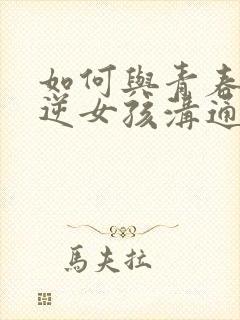 如何與青春
逆女孩溝通
馬夫拉